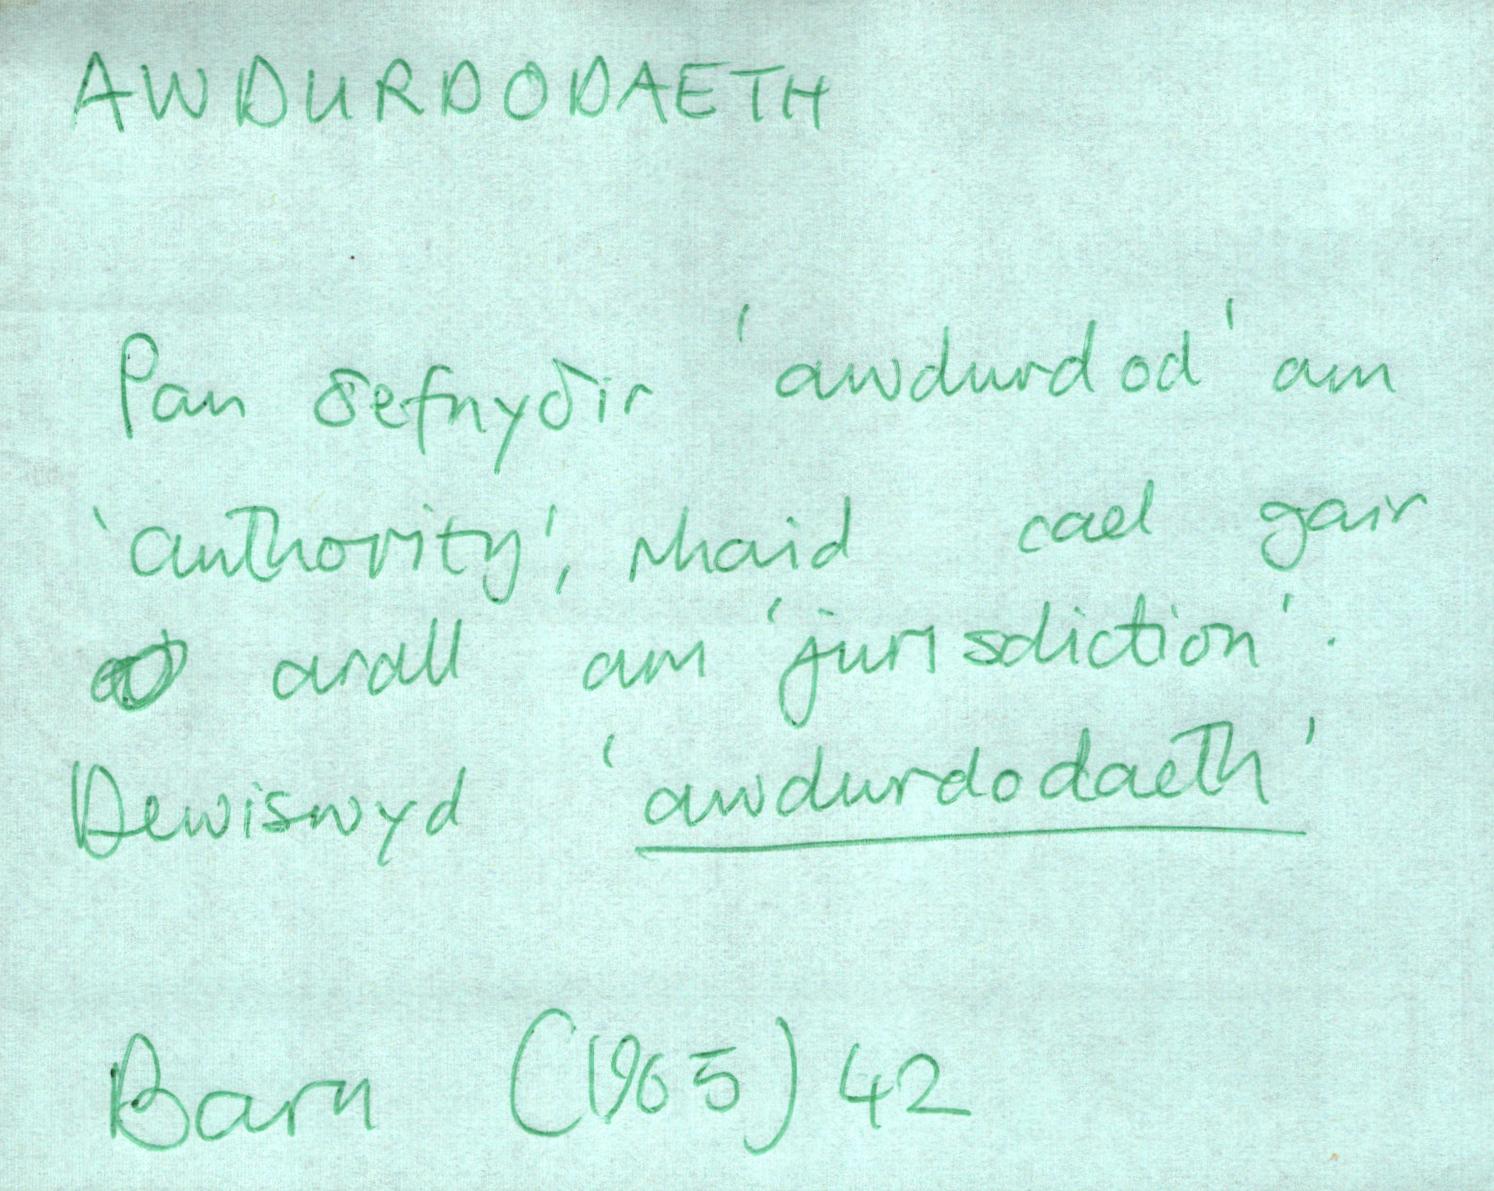 AWDURDODAETH
Pan δefnyδir 'awdurdod' am
'authority', rhaid cael gair
arall am 'jurisdiction'.
Dewiswyd 'awdurdodaeth'
Barn (1965) 42